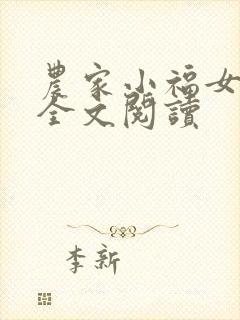 農家小福女
全文閱讀
李新